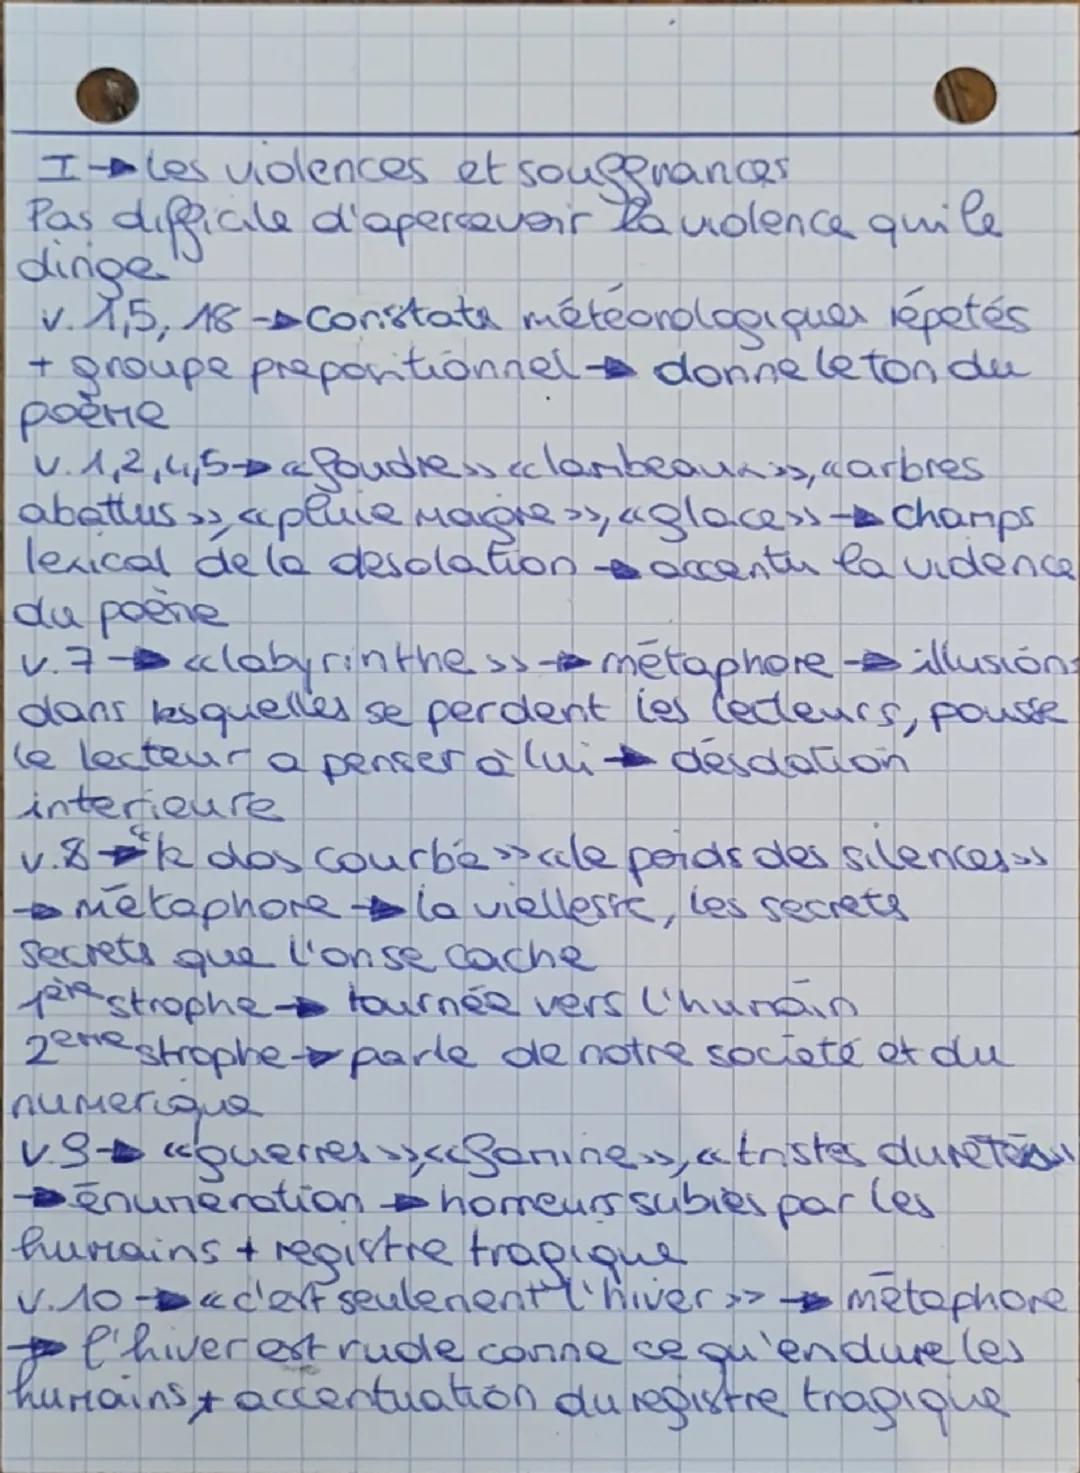 I → Les violences et souffrances
Pas difficile d'apercevoir la violence qui le
dirige
v. 1,5, 18 → Constats météorologiques répetés
+ groupe prepositionnel → donne le ton du
poème
v. 1,2,4,5 → «foudre» «lambeaux», «arbres
abattus», «pluie maigre», «glace» → champs
lexical de la desolation → accentu la violence
du poème
v. 7 → «labyrinthe» → métaphore → illusions
dans lesquelles se perdent les lecteurs, pousse
le lecteur a penser à lui → désolation
interieure
v. 8 → «le dos courbé» «le poids des silences»
→ métaphore → la viellesse, les secrets
secrets que l'on se cache
1ère strophe → tournée vers l'humain
2eme strophe → parle de notre societé et du
numerique
v. 9 → «guerres», «famine», «tristes duretés»
→ énumération → horreurs subies par les
humains + registre tragique
v. 10 → «c'est seulement l'hiver» → métaphore
→ l'hiver est rude comme ce qu'endure les
humains + accentuation du registre tragique